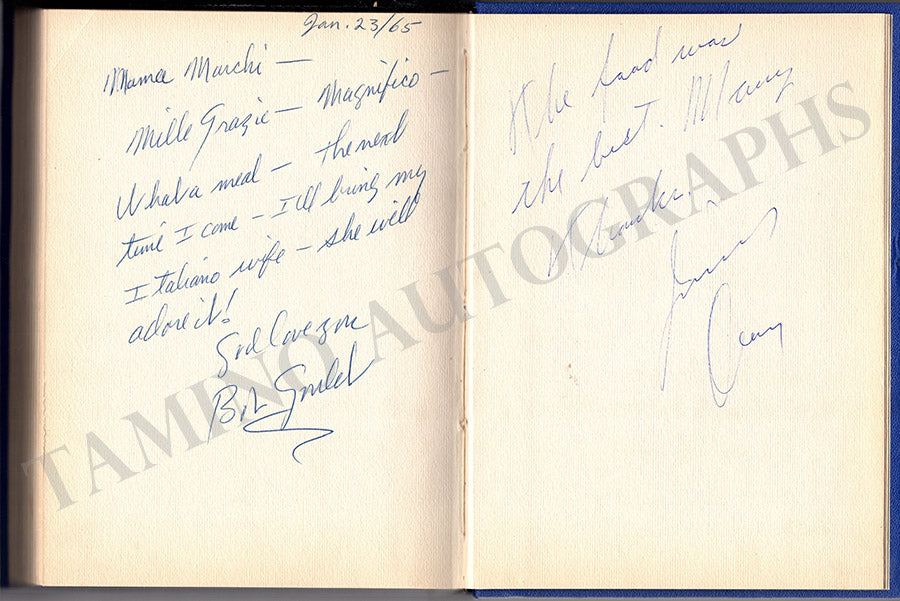 Jan. 23/65
Mama Marchi —
Mille Grazie — Magnifico —
What a meal — the next
time I come — I'll bring my
Italiano wife — she will
adore it!
God Love you
Bob Goulet
The food was
the best. Many
thanks.
Cany
TAMINO AUTOGRAPHS